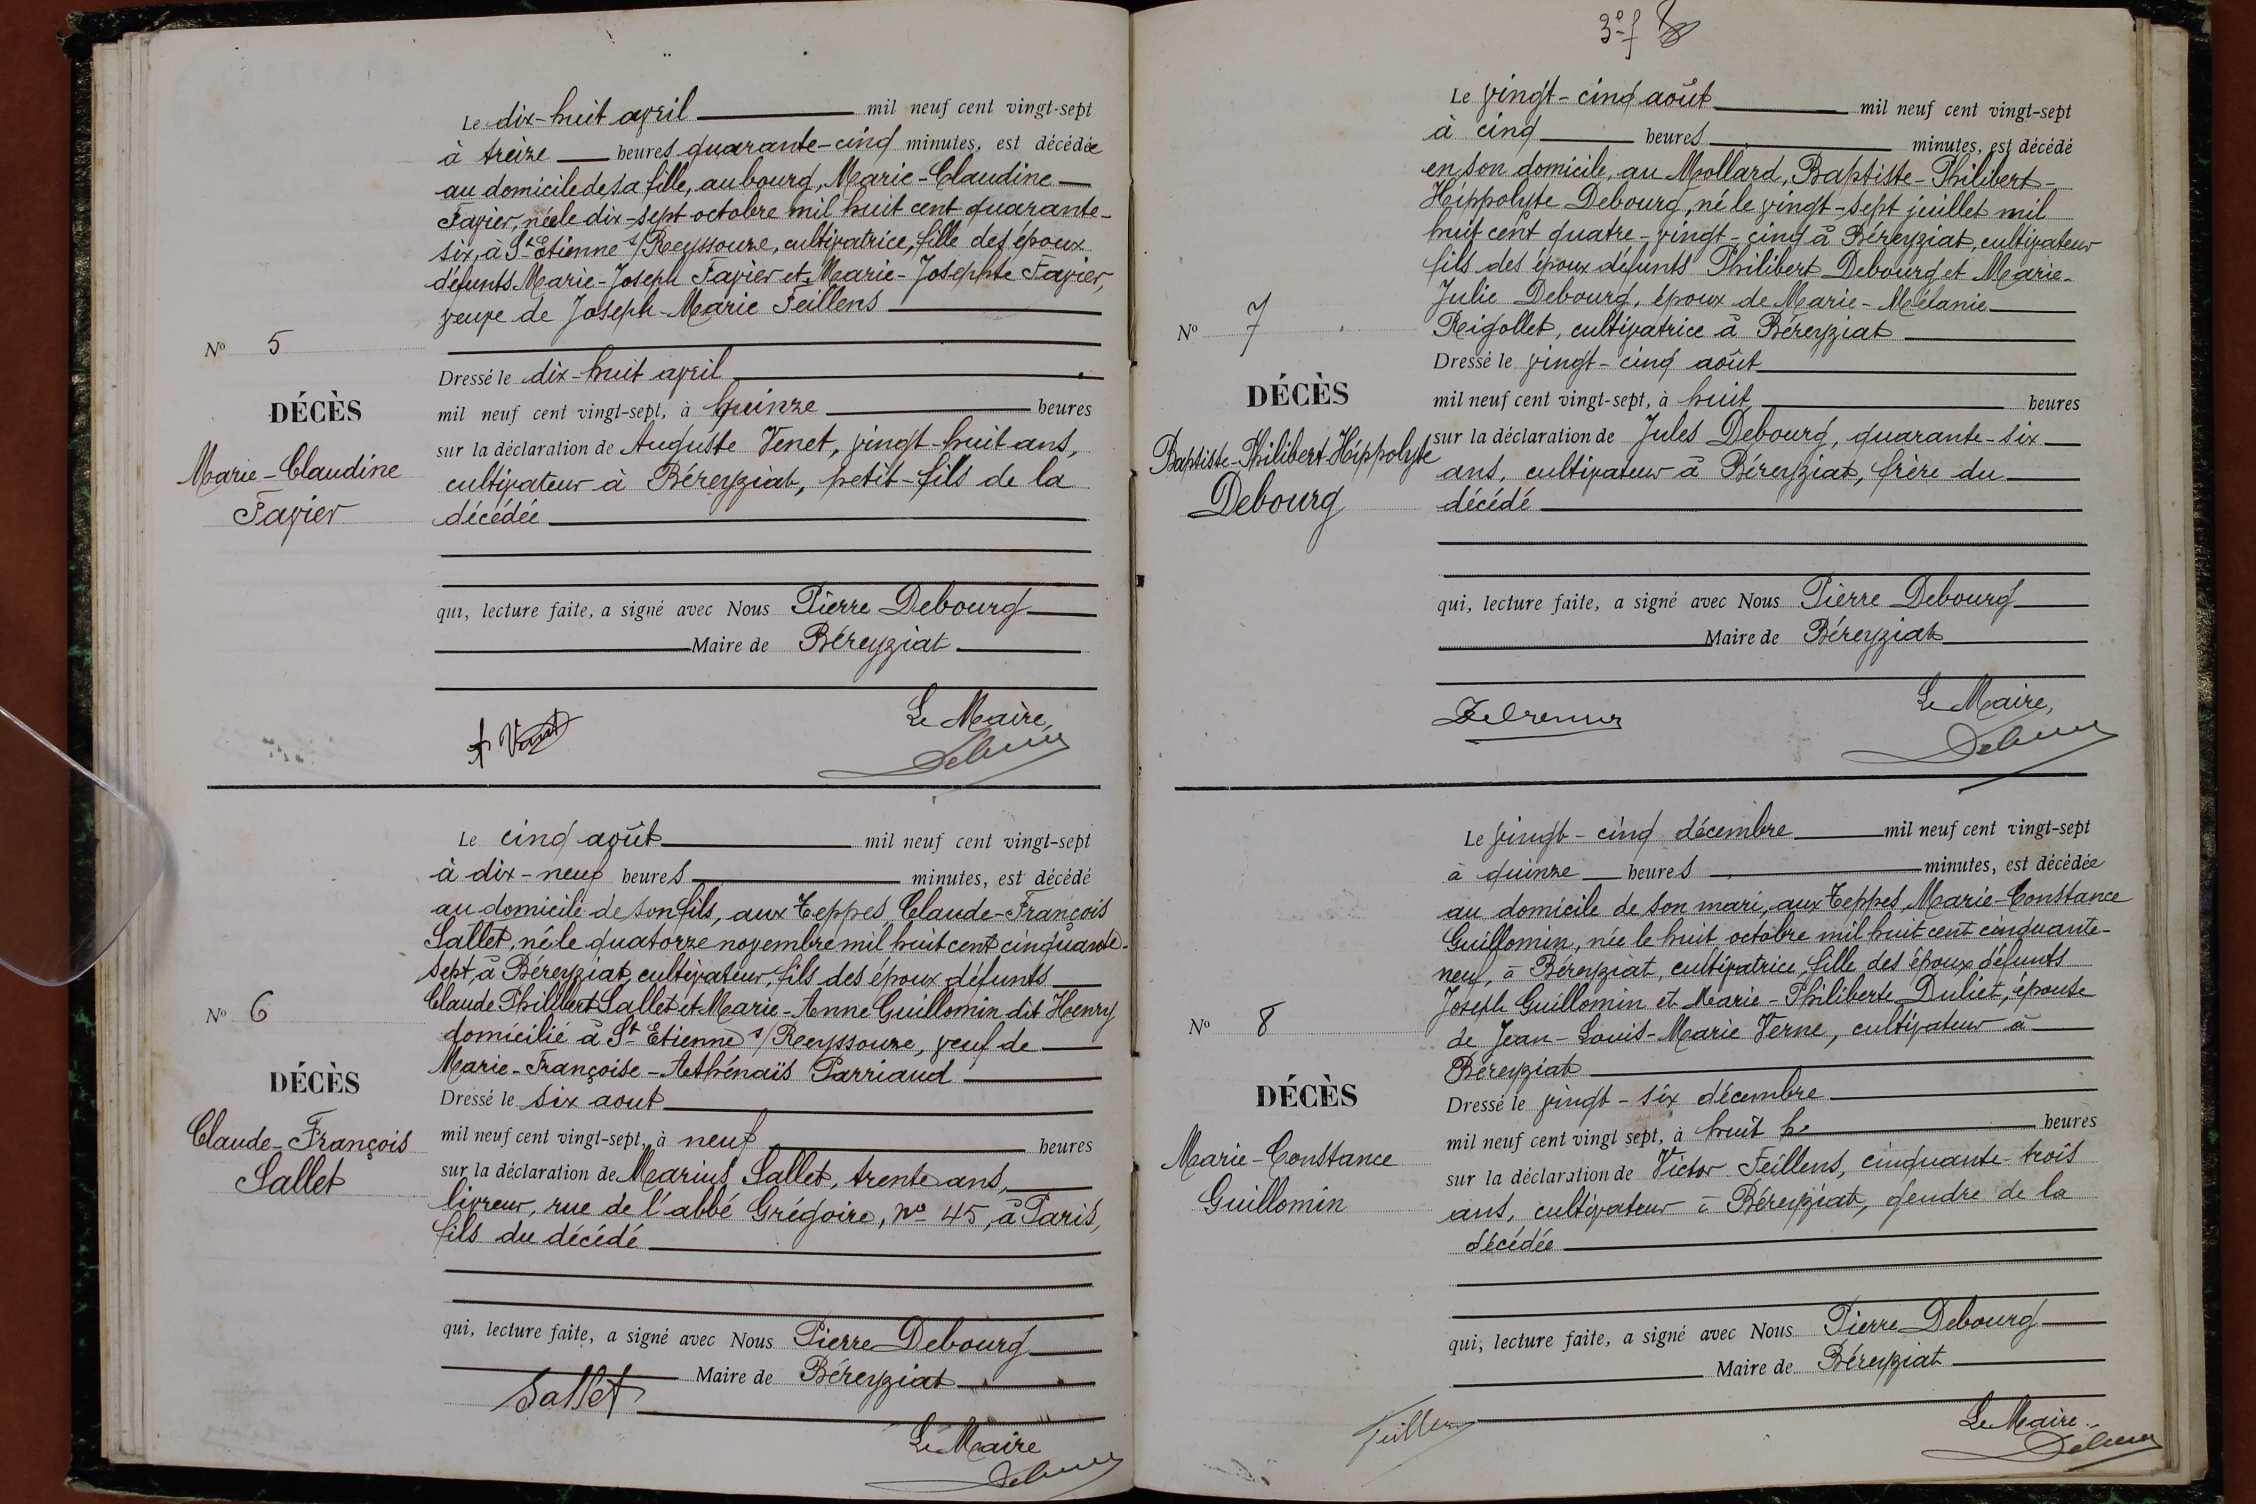 Le dix-huit avril mil neuf cent vingt-sept
à treize heures quarante-cinq minutes, est décédée
au domicile de sa fille, au bourg, Marie-Claudine
Favier, née le dix-sept octobre mil huit cent quarante-
six, à St Etienne s/Reyssouze, cultivatrice, fille des époux
défunts Marie-Joseph Favier et Marie-Josephte Favier,
veuve de Joseph-Marie Feillens
No 5
Dressé le dix-huit avril
DÉCÈS
mil neuf cent vingt-sept, à quinze heures
sur la déclaration de Auguste Venet, vingt-huit ans,
Marie-Claudine
Favier
cultivateur à Béreyziat, petit-fils de la
décédée
qui, lecture faite, a signé avec Nous Pierre Debourg
Maire de Béreyziat
Le Maire,
Le cinq août mil neuf cent vingt-sept
à dix-neuf heures minutes, est décédé
au domicile de son fils, aux Teppes, Claude-François
Sallet, né le quatorze novembre mil huit cent cinquante-
sept, à Béreyziat, cultivateur, fils des époux défunts
Claude Philibert Sallet et Marie-Anne Guillomin dit Henry
No 6
domicilié à St Etienne s/Reyssouze, veuf de
Marie-Françoise-Athénaïs Parriaud
DÉCÈS
Dressé le six aout
Claude-François
Sallet
mil neuf cent vingt-sept, à neuf heures
sur la déclaration de Marius Sallet, trente ans,
livreur, rue de l'abbé Grégoire, No 45, à Paris,
fils du décédé
qui, lecture faite, a signé avec Nous Pierre Debourg
Maire de Béreyziat
Sallet
Le Maire
3e f 8
Le vingt-cinq août mil neuf cent vingt-sept
à cinq heures minutes, est décédé
en son domicile, au Mollard, Baptiste-Philibert-
Hippolyte Debourg, né le vingt-sept juillet mil
huit cent quatre-vingt-cinq à Béreyziat, cultivateur
fils des époux défunts Philibert Debourg et Marie-
Julie Debourg, époux de Marie-Mélanie
No 7
Rigollet, cultivatrice à Béreyziat
Dressé le vingt-cinq août
DÉCÈS
mil neuf cent vingt-sept, à huit heures
Baptiste-Philibert-Hippolyte
Debourg
sur la déclaration de Jules Debourg, quarante-six
ans, cultivateur à Béreyziat, frère du
décédé
qui, lecture faite, a signé avec Nous Pierre Debourg
Maire de Béreyziat
Le Maire,
Le vingt-cinq décembre mil neuf cent vingt-sept
à quinze heures minutes, est décédée
au domicile de son mari, aux Teppes, Marie-Constance
Guillomin, née le huit octobre mil huit cent cinquante-
neuf, à Béreyziat, cultivatrice, fille des époux défunts
Joseph Guillomin et Marie-Philiberte Duliet, épouse
No 8
de Jean-Louis-Marie Verne, cultivateur à
Béreyziat
DÉCÈS
Dressé le vingt-six décembre
mil neuf cent vingt sept, à huit h. heures
Marie-Constance
Guillomin
sur la déclaration de Victor Feillens, cinquante-trois
ans, cultivateur à Béreyziat, gendre de la
décédée
qui, lecture faite, a signé avec Nous Pierre Debourg
Maire de Béreyziat
Le Maire